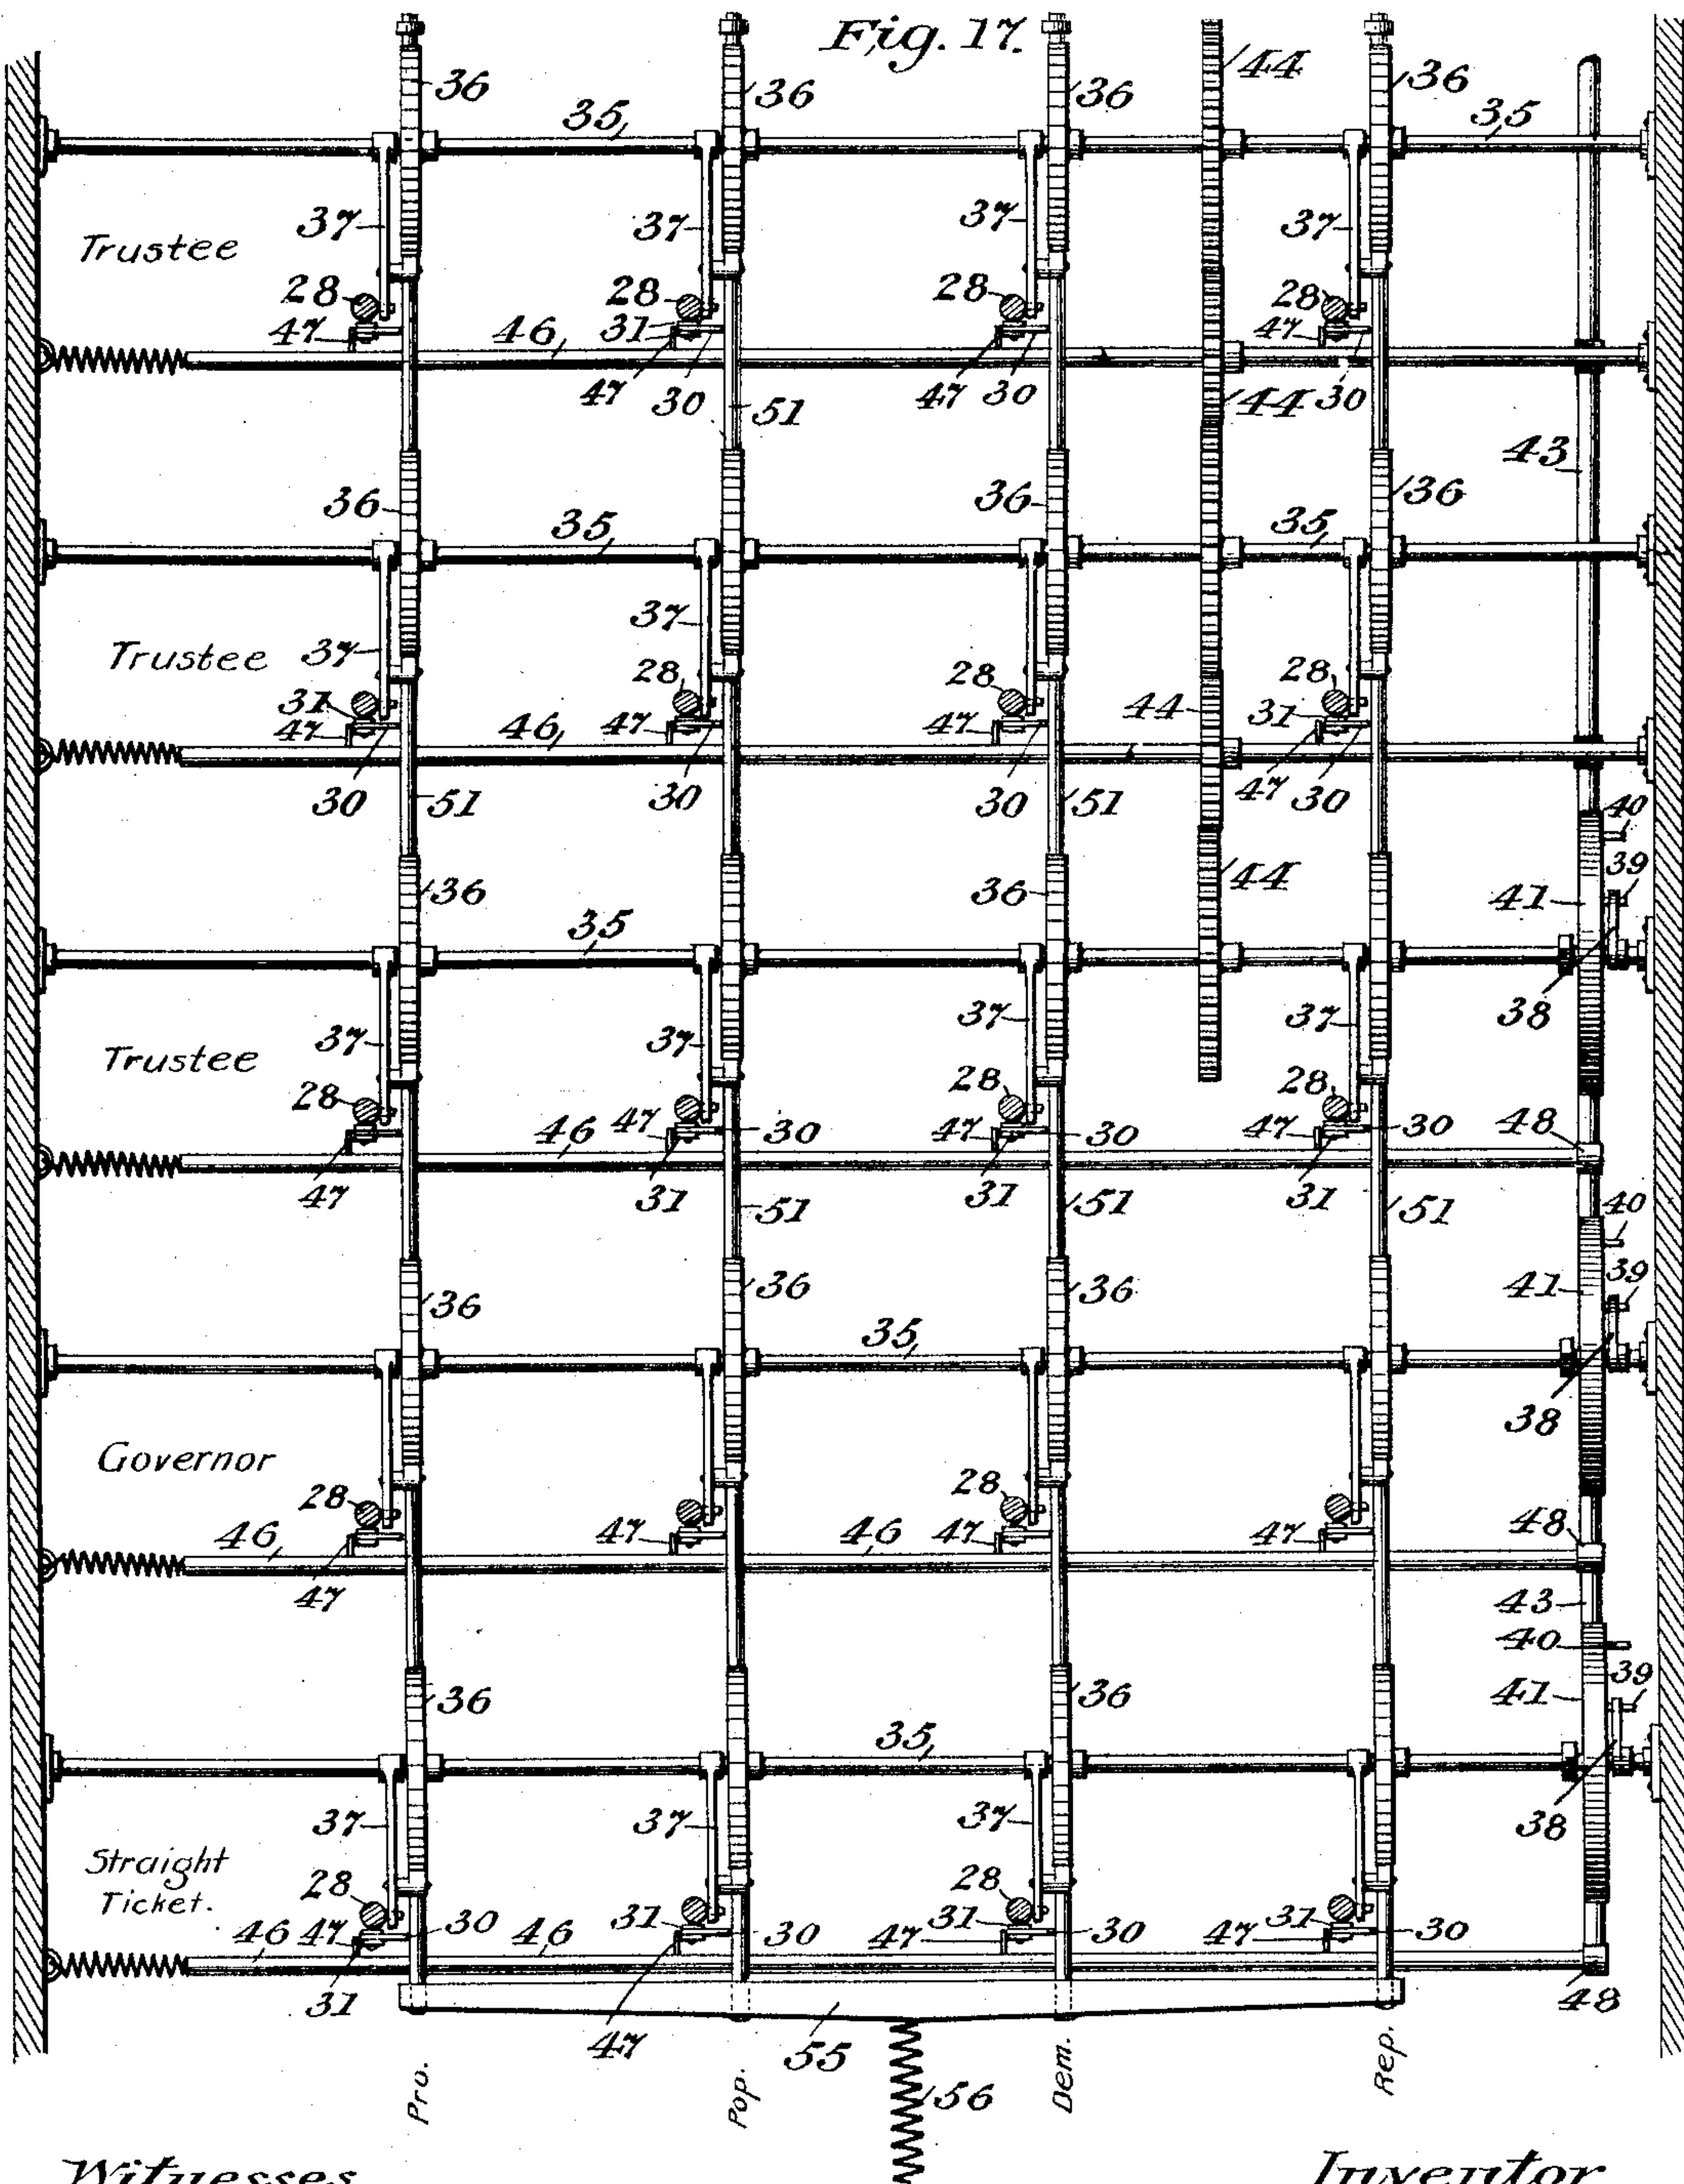 Fig. 17.
36 36 36 44 36
35 35
37 37 37 37
Trustee
28 28 28 28
47 46 31 47
47 30 47 30 44 30
51
43
36 36 36
35 35
37
Trustee 37
28 28 28
31 44 31
47 46 47 47
47 30
30 51 30 30 51
40
39
36 36 44 41
35
38
37 37 37 37
Trustee
28 28 28
47 46 47 30 47 30 47 30 48
31 31 31
51 51 51
40
39
36 36 36 41
35
38
Governor
28 28
46 47 46 47 47 48
47
43
40
39
36 36 41
35
38
37 37 37
Straight
Ticket.
28 28
46 47 30 46 31 30 31 30 31 30
47 47
31 48
47 55
56
Pro. Pop. Dem. Rep.
Witnesses Inventor